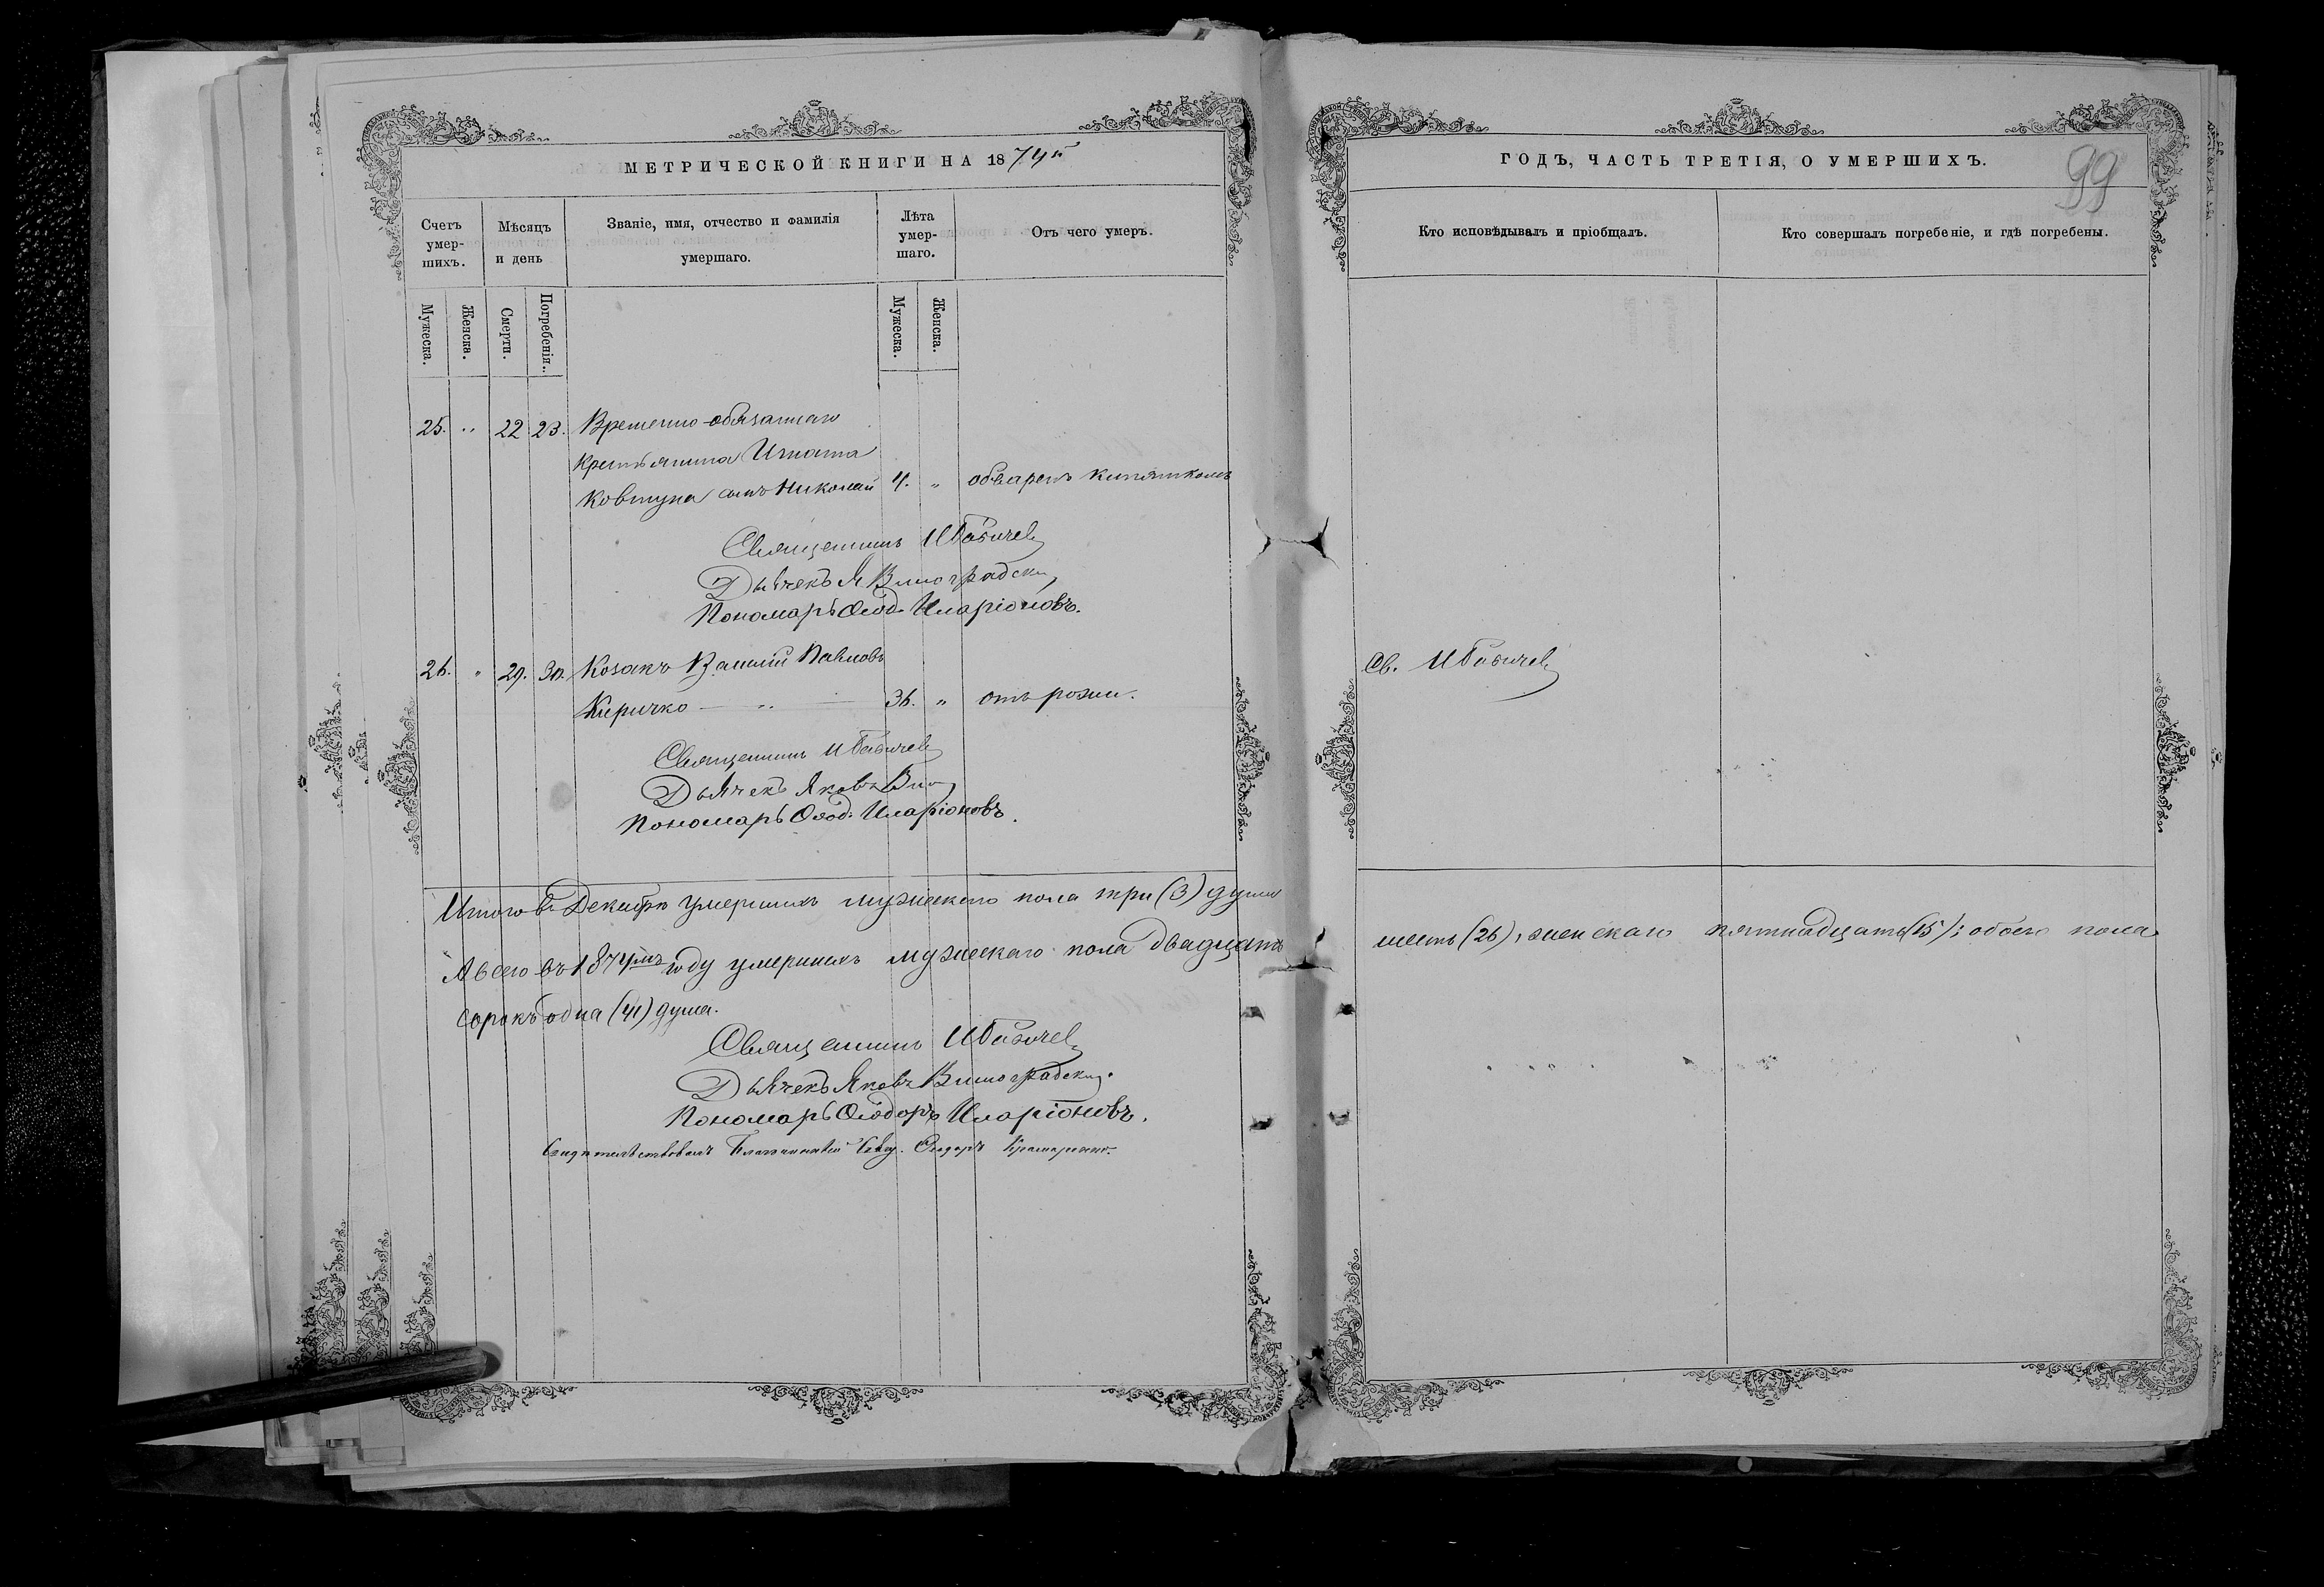 МЕТРИЧЕСКОЙ КНИГИ НА 1874й
Счетъ умер-шихъ.
Мѣсяцъ и день
Званіе, имя, отчество и фамилія умершаго.
Лѣта умер-шаго.
Отъ чего умеръ.
Мужеска.
Женска.
Смерти.
Погребенія.
Мужеска.
Женска.
25. " 22 23. Временно-обязаннаго
крестьянина Игната
Ковтуна сынъ Николай 4. " обваренъ кипяткомъ
Священникъ И Бабичев
Дьячекъ Я Виноградски
Пономарь Ѳеод. Иларіоновъ.
26. " 29. 30. Козакъ Василій Павловъ
Киричко — " — 36. " отъ рожи.
Священникъ И Бабичев
Дьячекъ Яковъ Вин
Пономарь Ѳеод. Иларіоновъ.
Итого въ Декабрѣ умершихъ мужескаго пола три (3) души
А всего въ 1874мъ году умершихъ мужескаго пола двадцать
сорокъ одна (41) душа.
Священникъ И Бабичев
Дьячекъ Яковъ Виноградски.
Пономарь Ѳеодоръ Иларіоновъ.
Свидѣтельствовалъ Благочинный Свящ. Ѳеодоръ Крамаренко.
ГОДЪ, ЧАСТЬ ТРЕТІЯ, О УМЕРШИХЪ.
99
Кто исповѣдывалъ и пріобщалъ.
Кто совершалъ погребеніе, и гдѣ погребены.
Св. И Бабичев
шесть (26), женскаго пятнадцать (15); обоего пола